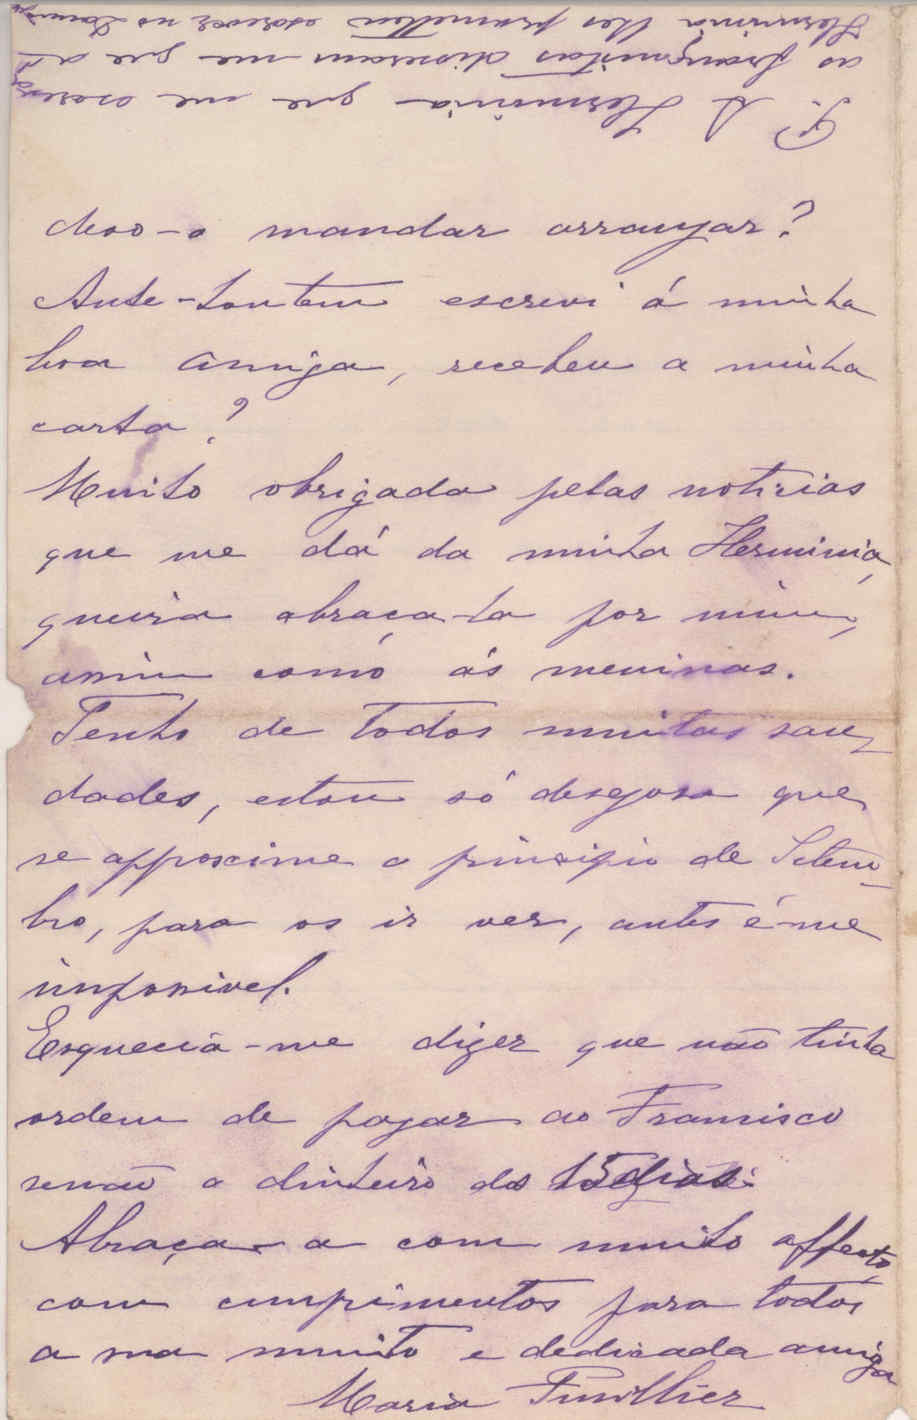 devo-o mandar arranjar?
Ante-hontem escrevi á minha
boa amiga, recebeu a minha
carta?
Muito obrigada pelas noticias
que me dá da minha Herminia,
queira abraça-la por mim,
assim como ás meninas.
Tenho de todos muitas sau-
dades, estou só desejosa que
se approxime o principio de Setem-
bro, para os ir ver, antes é-me
impossivel.
Esquecia-me dizer que não tinha
ordem de pagar ao Francisco
senão o dinheiro dos 15 dias.
Abraça-a com muito affecto,
com cumprimentos para todos
a sua muito e dedicada amiga
Maria
P. S. Herminia que me
as francesitas disseram me que a
Herminia lhes prometteu escrever no